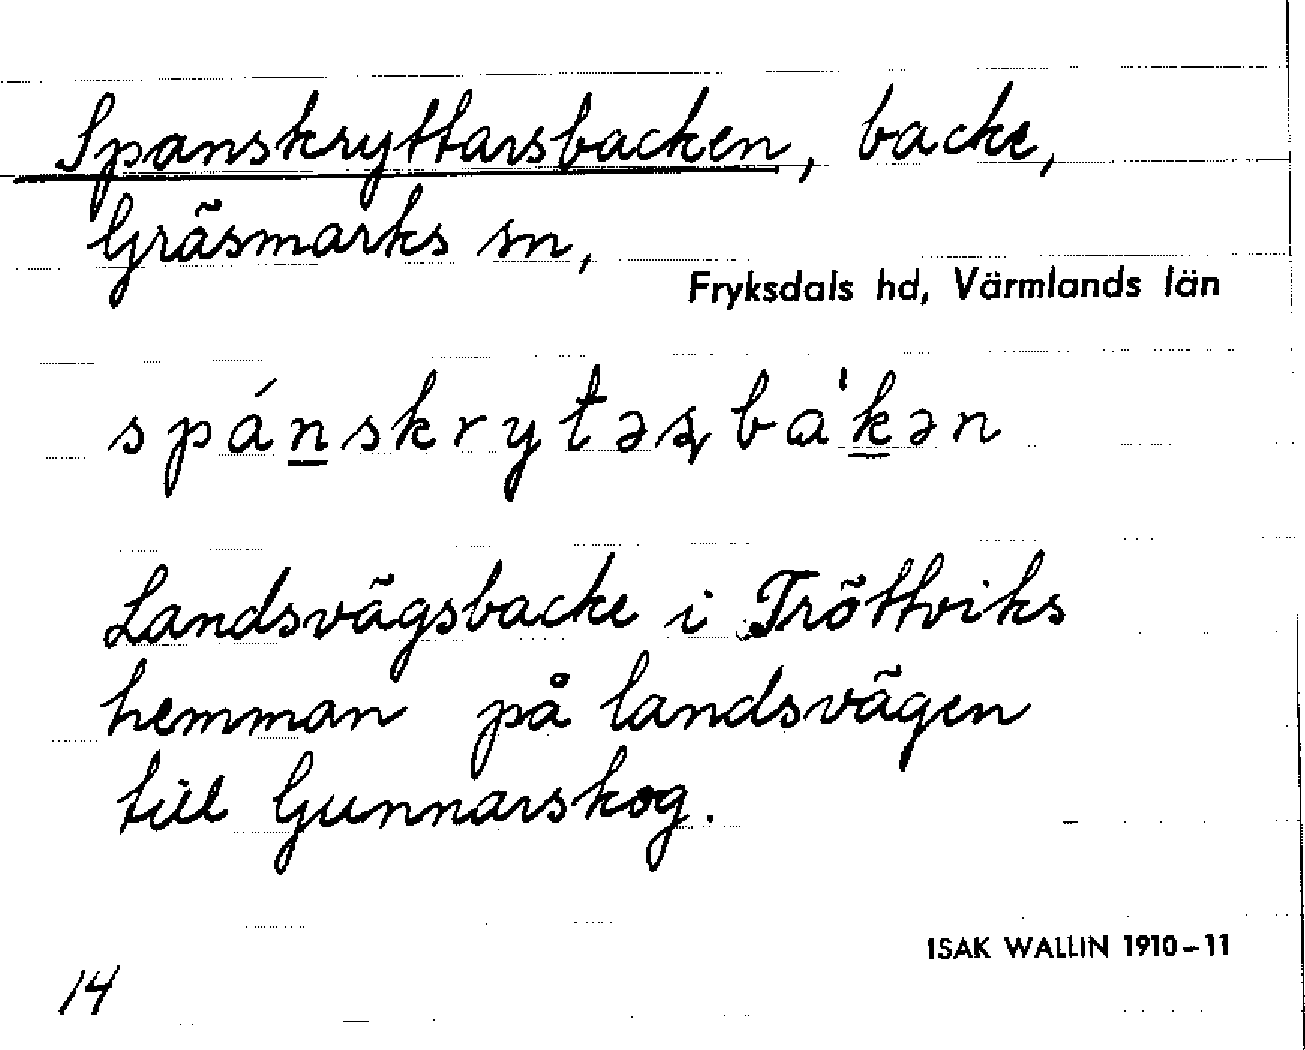 Spanskryttarsbacken, backe,
Gräsmarks sn,
Fryksdals hd, Värmlands län
spánskrytəʂbà'kən
Landsvägsbacke i Tröttviks
hemman på landsvägen
till Gunnarskog.
ISAK WALLIN 1910-11
14